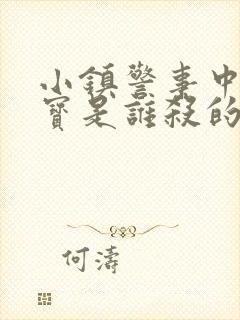 小鎮警事中
寶是誰殺的
何濤